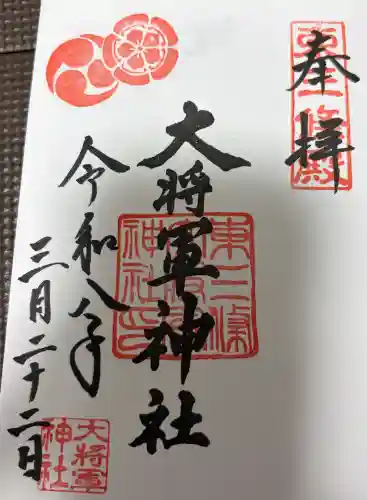 奉拝
大将軍神社
令和八年
三月二十二日
大将軍
神社